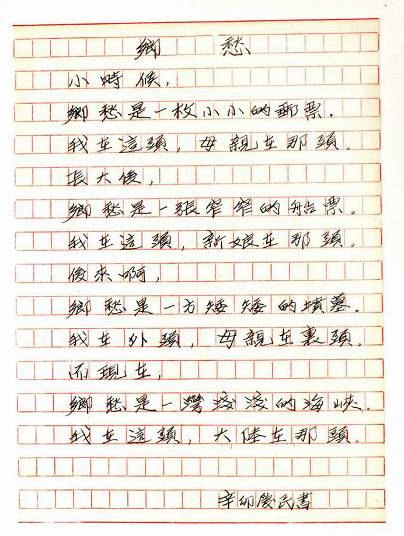 鄉愁
小時候，
鄉愁是一枚小小的郵票．
我在這頭，母親在那頭．
長大後，
鄉愁是一張窄窄的船票。
我在這頭，新娘在那頭．
後來啊，
鄉愁是一方矮矮的墳墓．
我在外頭，母親在裏頭．
而現在，
鄉愁是一灣淺淺的海峽．
我在這頭，大陸在那頭．
辛卯慶民書